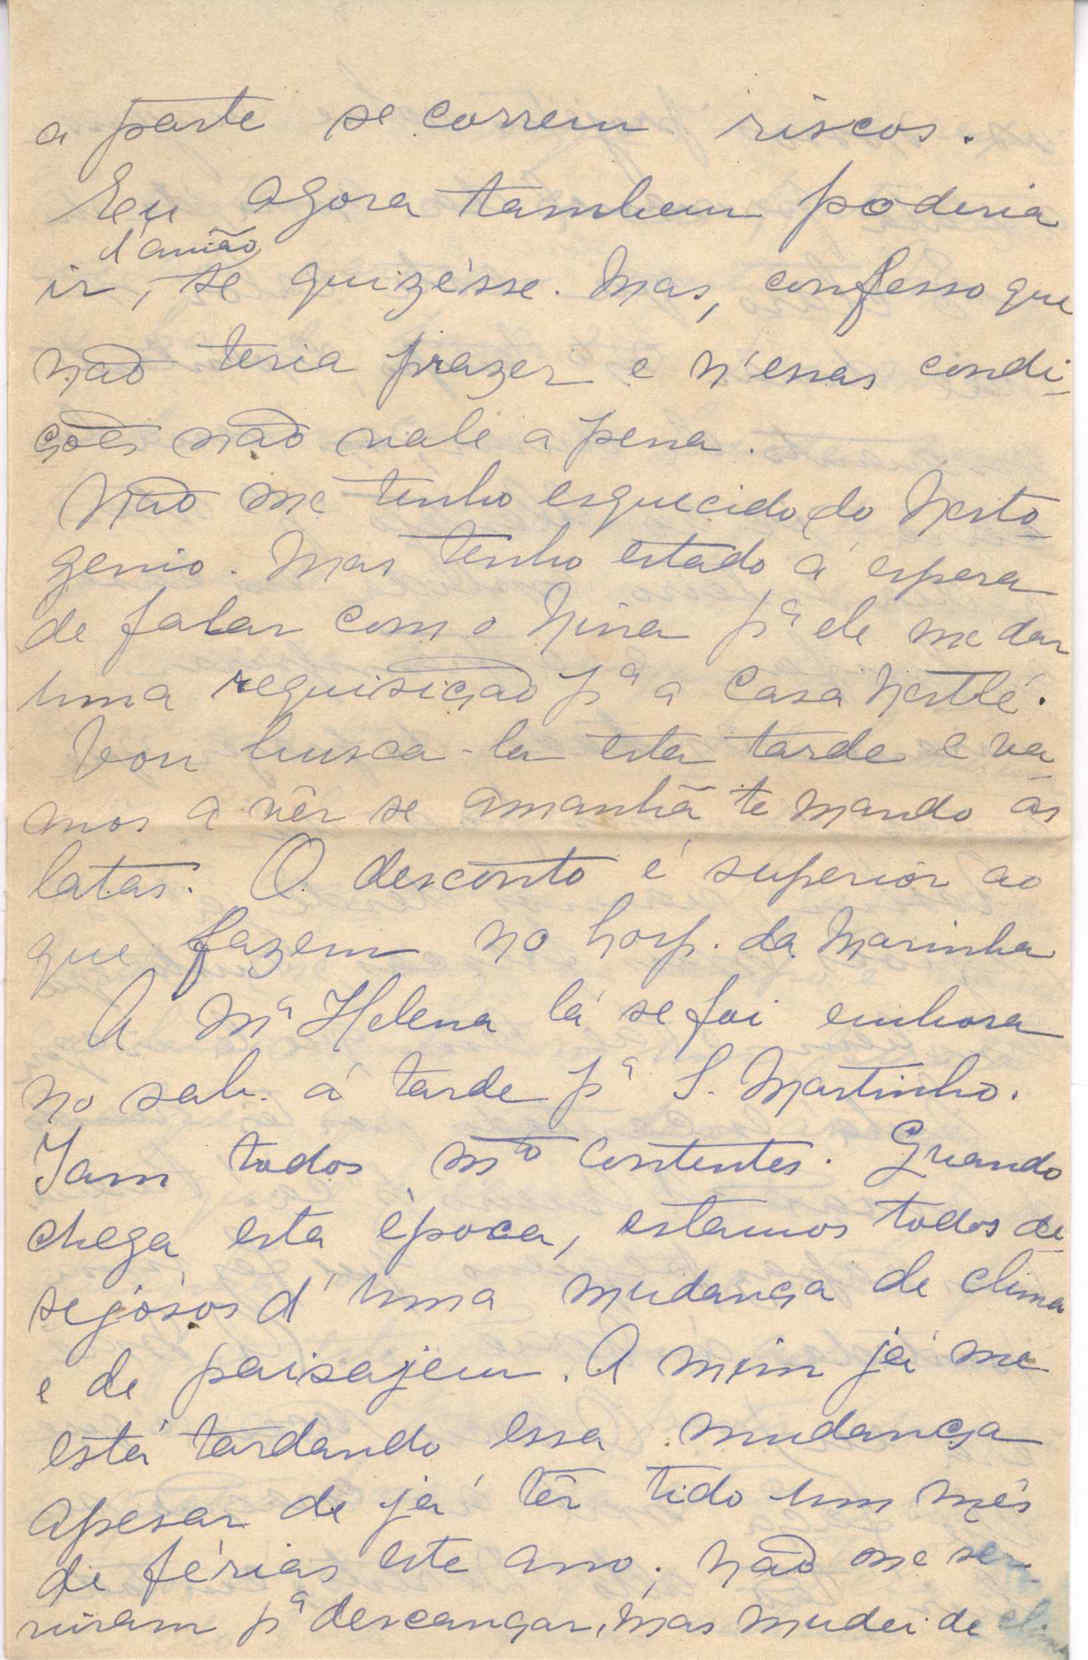 a parte se correm riscos.
Eu agora tambem poderia
d'avião
ir, se quizésse. Mas, confesso que
não teria prazer e n'essas condi-
ções não vale a pena.
Não me tenho esquecido do Nesto-
genio. Mas tenho estado á espera
de falar com o Nina pª ele me dar
uma requisição pª a Casa Nestlé.
Vou busca-la esta tarde e va-
mos a vêr se amanhã te mando as
latas. O desconto é superior ao
que fazem no hosp. da Marinha
A Mª Helena lá se foi embora
no sab. á tarde pª S. Martinho.
Iam todos mto contentes. Quando
chega esta época, estamos todos de-
sejósos d'uma mudança de clima
e de paisajem. A mim já me
está tardando essa mudança
apesar de já têr tido um mês
de férias este ano. Não me ser-
viram pª descançar, mas mudei de clima